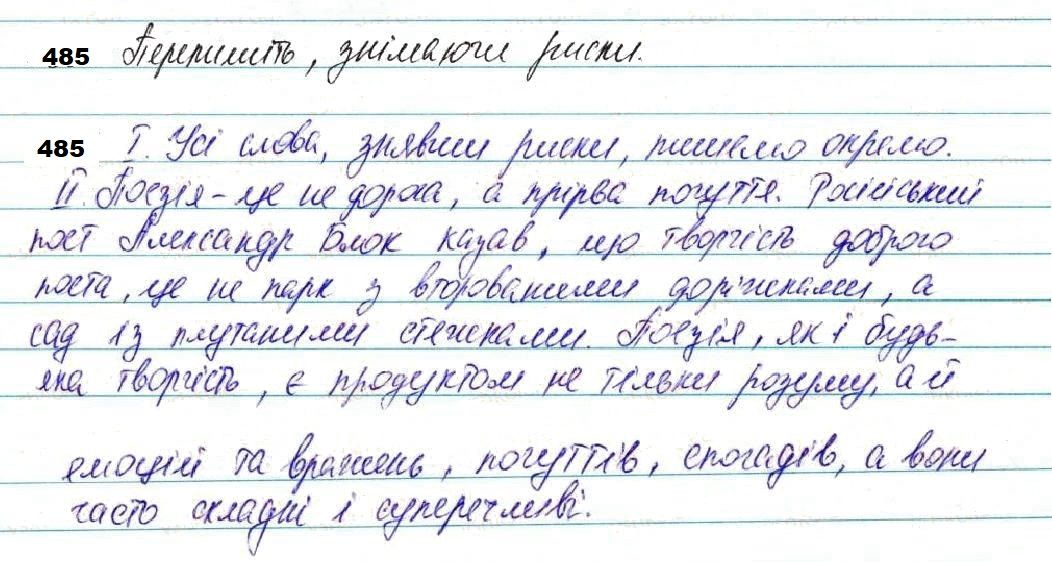 485 Перепишіть, знімаючи риски.
485 I. Усі слова, знявши риски, пишемо окремо.
II. Поезія – це не дорога, а прірва почуття. Російський
поет Александр Блок казав, що творчість доброго
поета, це не парк з второваними доріжками, а
сад із плутаними стежками. Поезія, як і будь-
яка творчість, є продуктом не тільки розуму, а й
емоцій та вражень, почуттів, спогадів, а вони
часто складні і суперечливі.